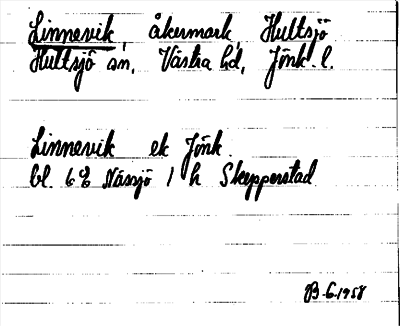 Linnevik, åkermark, Hultsjö
Hultsjö sn, Västra hd, Jönk. l.
Linnevik ek Jönk.
bl. 6 Nässjö 1 h Skepperstad
B-6.1958